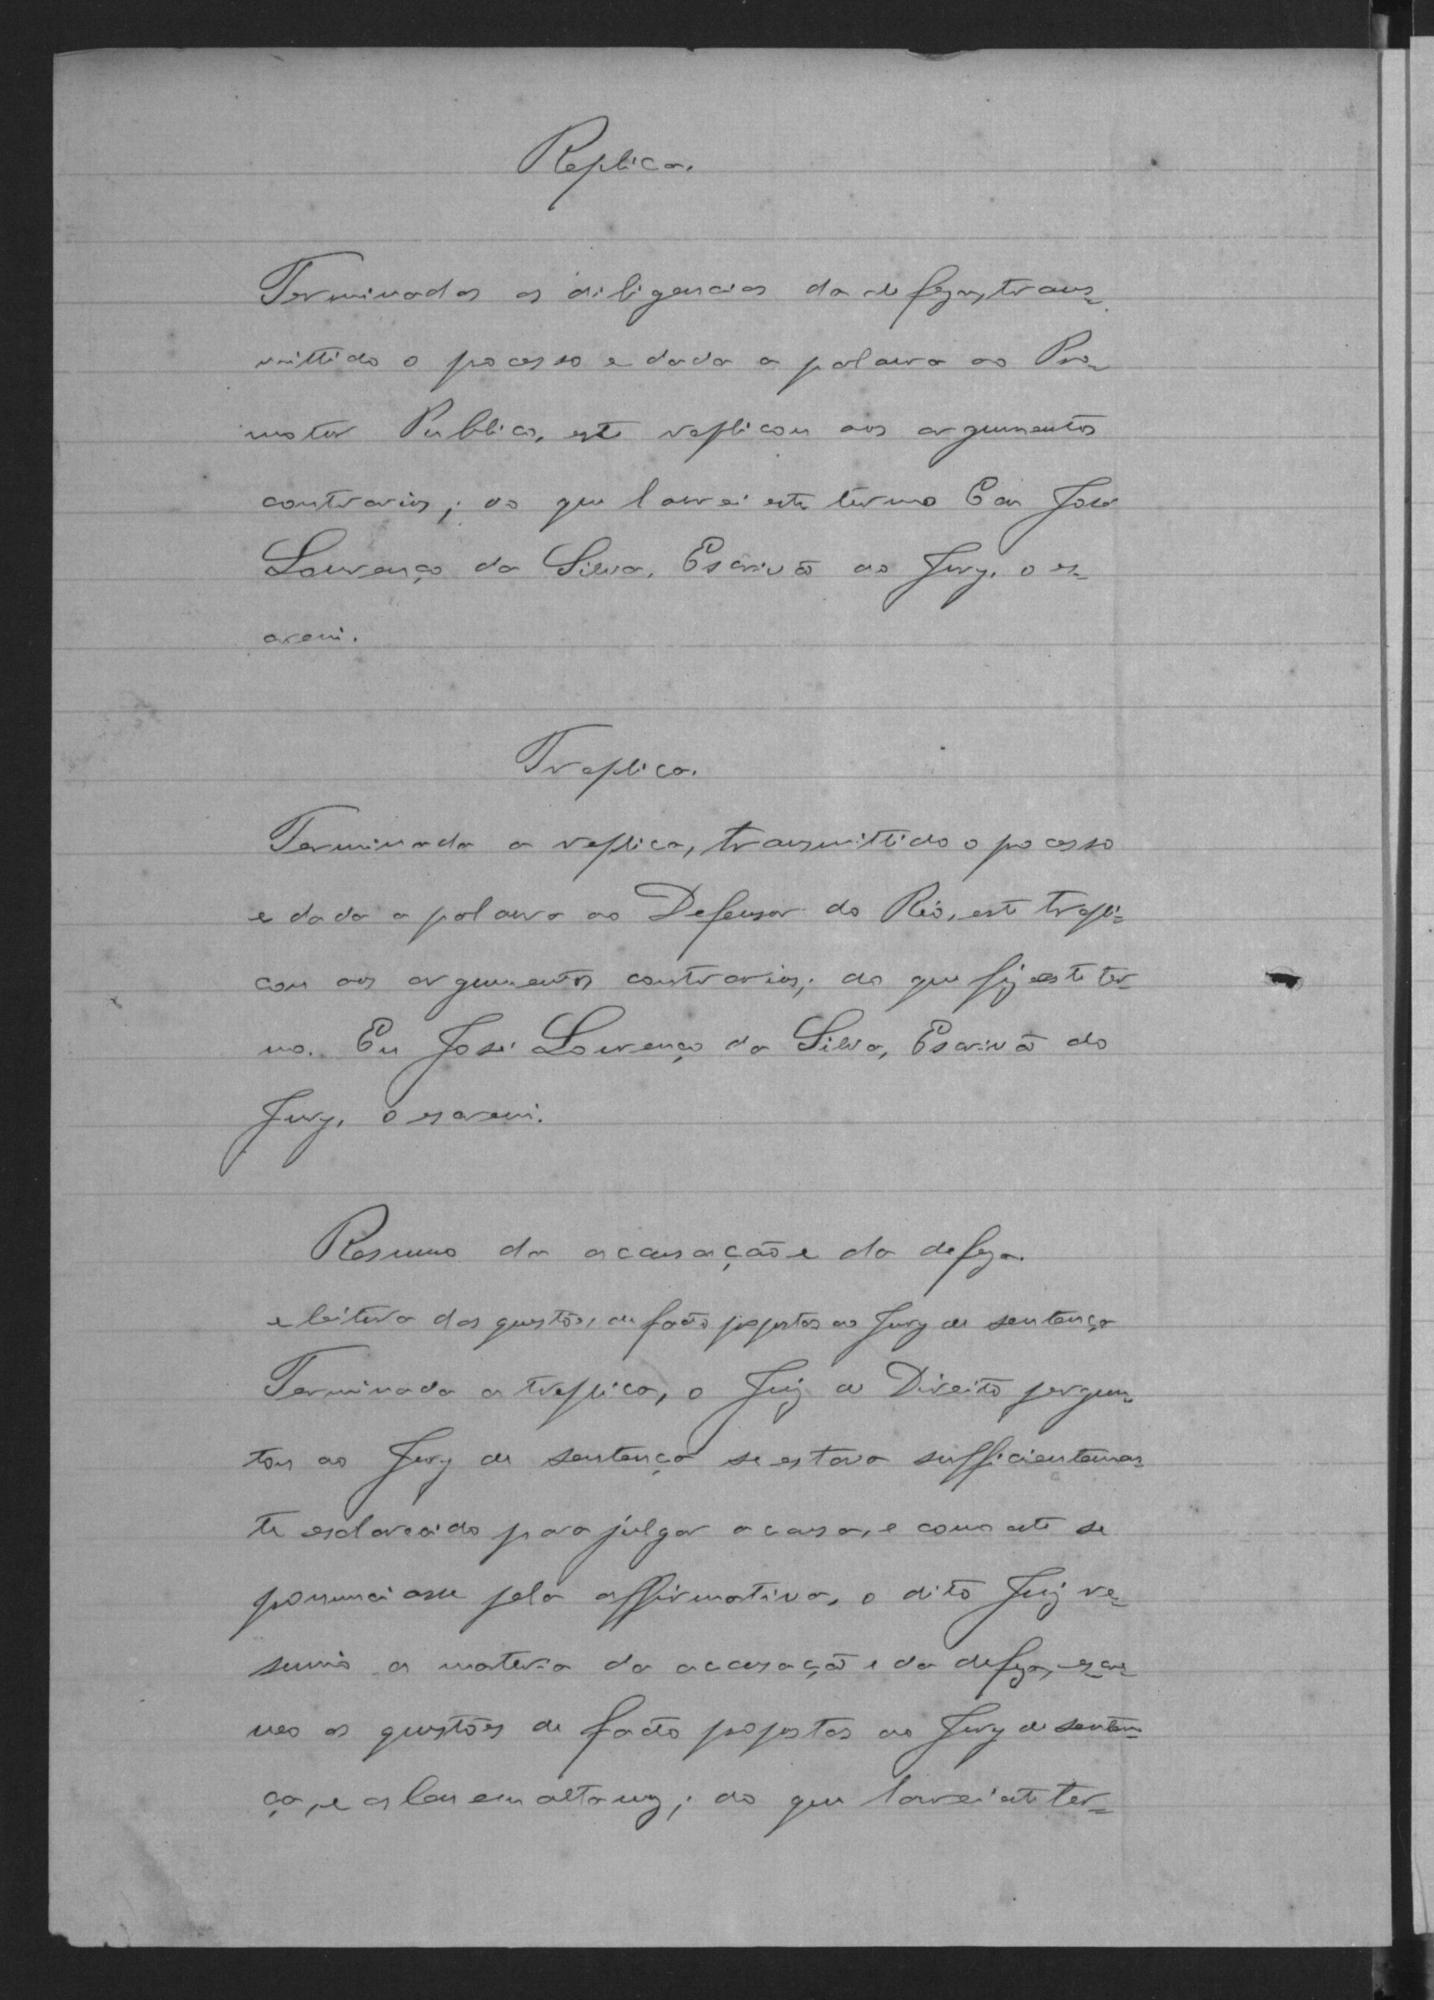 Replica.
Terminadas as diligencias da defeza, trans-
mittido o pocesso e dada a palavra ao Pro-
motor Publico, este replicou aos argumentos
contrarios; do que lavrei este termo Eu José
Lourenço da Silva, Escrivão do Jury, o es-
crevi.
Treplica.
Terminada a replica, transmittido o pocesso
e dada a palavra ao Defensor do Réo, este trepli-
cou aos argumentos contrarios; do que fiz este ter-
mo. Eu José Lourenço da Silva, Escrivão do
Jury, o escrevi.
Resumo da accusação e da defeza.
e leitura das questões de facto propostas ao Jury de sentença
Terminada a treplica, o Juiz de Direito pergun-
tou ao Jury de sentença se estava sufficientemen-
te esclarecido para julgar a causa, e como este se
pronunciasse pela affirmativa, o dito Juiz re-
sumio a materia da accusação e da defeza, escre-
veo as questões de facto propostas ao Jury de senten-
ça, e as leu em alta voz; do que lavrei este ter-